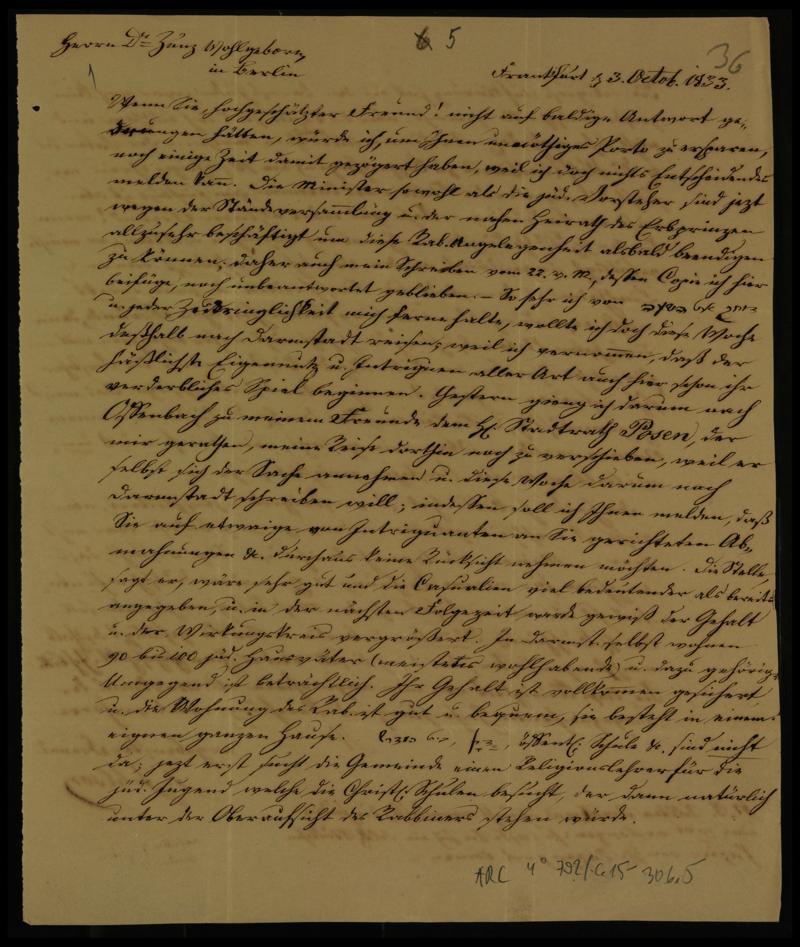 6 5
36
Herrn Dr Zunz Wohlgeborn
in Berlin
Frankfurt d 3. Octob. 1833.
Wenn Sie, hochgeschätzter Freund! nicht auf baldige Antwort ge-
drungen hätten, würde ich, um Ihnen unnöthiges Porto zu ersparen,
noch einige Zeit damit gezögert haben, weil ich doch nichts Entscheidendes
melden kann. Die Minister sowohl als die jüd. Vorsteher sind jetzt
wegen der Ständeversammlung u. der nahen Heirath des Erbprinzen
allzusehr beschäftigt um diese Rab. Angelegenheit alsbald beendigen
zu können; daher auch mein Schreiben vom 22. v. M., dessen Copie ich hier
beifüge, noch unbeantwortet geblieben. – So sehr ich von
u. jeder Zudringlichkeit mich ferne halte, wollte ich doch diese Woche
deßhalb nach Darmstadt reisen; weil ich vernommen, daß der
häßlichste Eigennutz u. Intriguen aller Art auch hier schon ihr
verderbliches Spiel beginnen. Gestern gieng ich darum nach
Offenbach zu meinem Freunde dem H. Stadtrath Posen, der
mir gerathen, meine Reise dorthin noch zu verschieben, weil er
selbst sich der Sache annehmen u. diese Woche darum nach
Darmstadt schreiben will; indessen soll ich Ihnen melden, daß
Sie auf etwaige von Intriguanten an Sie gerichteten Ab-
mahnungen &c. durchaus keine Rücksicht nehmen möchten. Die Stelle,
sagt er, wäre sehr gut und die Casualien viel bedeutender als bereits
angegeben, u. in der nächsten Folgezeit werde gewiß der Gehalt
u. der Wirkungskreis vergrößert. In Darmst. selbst wohnen
90 bis 100 jüd. Hausväter (meistens wohlhabende) u. dazu gehörige
Umgegend ist beträchtlich. Ihr Gehalt ist vollkommen gesichert
u. die Wohnung des Rab. ist gut u. bequem, sie besteht in einem
eignen ganzen Hause. öffentl. Schule &c. sind nicht
da; jetzt erst sucht die Gemeinde einen Religionslehrer für die
jüd. Jugend welche die Christl. Schulen besucht, der dann natürlich
unter der Oberaufsicht des Rabbiners stehen würde.
ARC 4° 792/C15-306.5